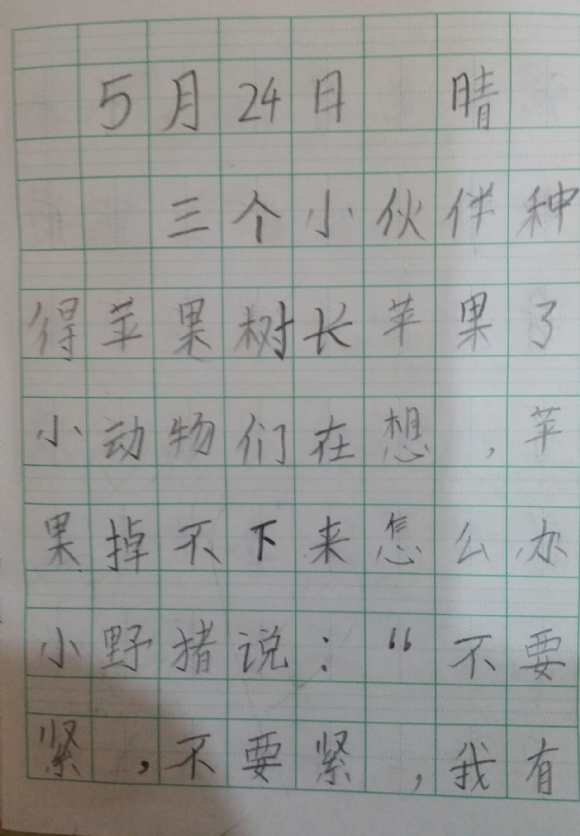 5月24日 晴
三个小伙伴种
得苹果树长苹果了
小动物们在想，苹
果掉不下来怎么办
小野猪说：“不要
紧，不要紧，我有